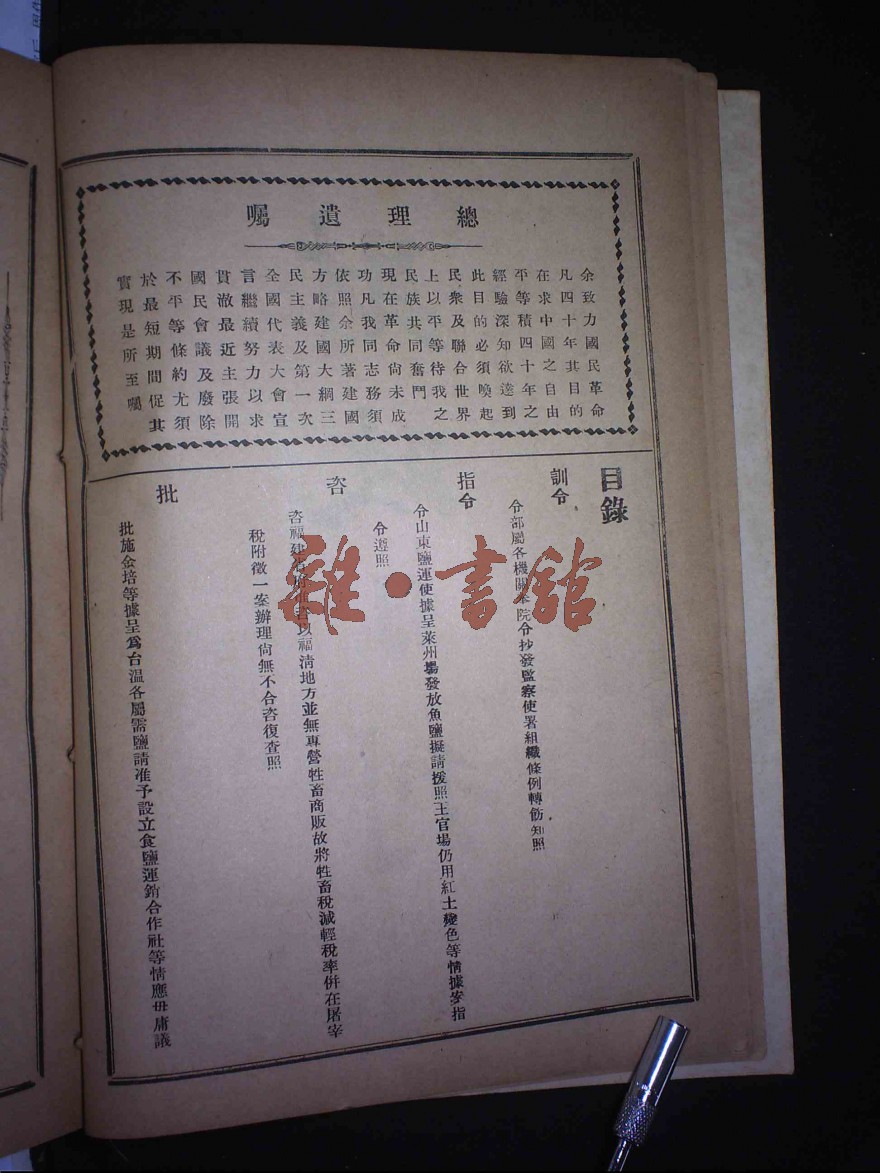 總理遺囑
余致力國民革命
凡四十年其目的
在求中國之自由
平等積四十年之
經驗深知欲達到
此目的必須喚起
民衆及聯合世界
上以平等待我之
民族共同奮鬥
現在革命尙未成
功凡我同志務須
依照余所著建國
方略建國大綱三
民主義及第一次
全國代表大會宣
言繼續努力以求
貫澈最近主張開
國民會議及廢除
不平等條約尤須
於最短期間促其
實現是所至囑
目錄
訓令
令部屬各機關奉院令抄發監察使署組織條例轉飭知照
指令
令山東鹽運使據呈萊州場發放魚鹽擬請援照王官場仍用紅土變色等情據安指
令遵照
咨
咨福建省府准咨以福淸地方並無專營牲畜商販故將牲畜稅減輕稅率併在屠宰
稅附徵一案辦理尙無不合咨復查照
批
批施金培等據呈爲台温各屬需鹽請准予設立食鹽運銷合作社等情應毋庸議
雜·書館